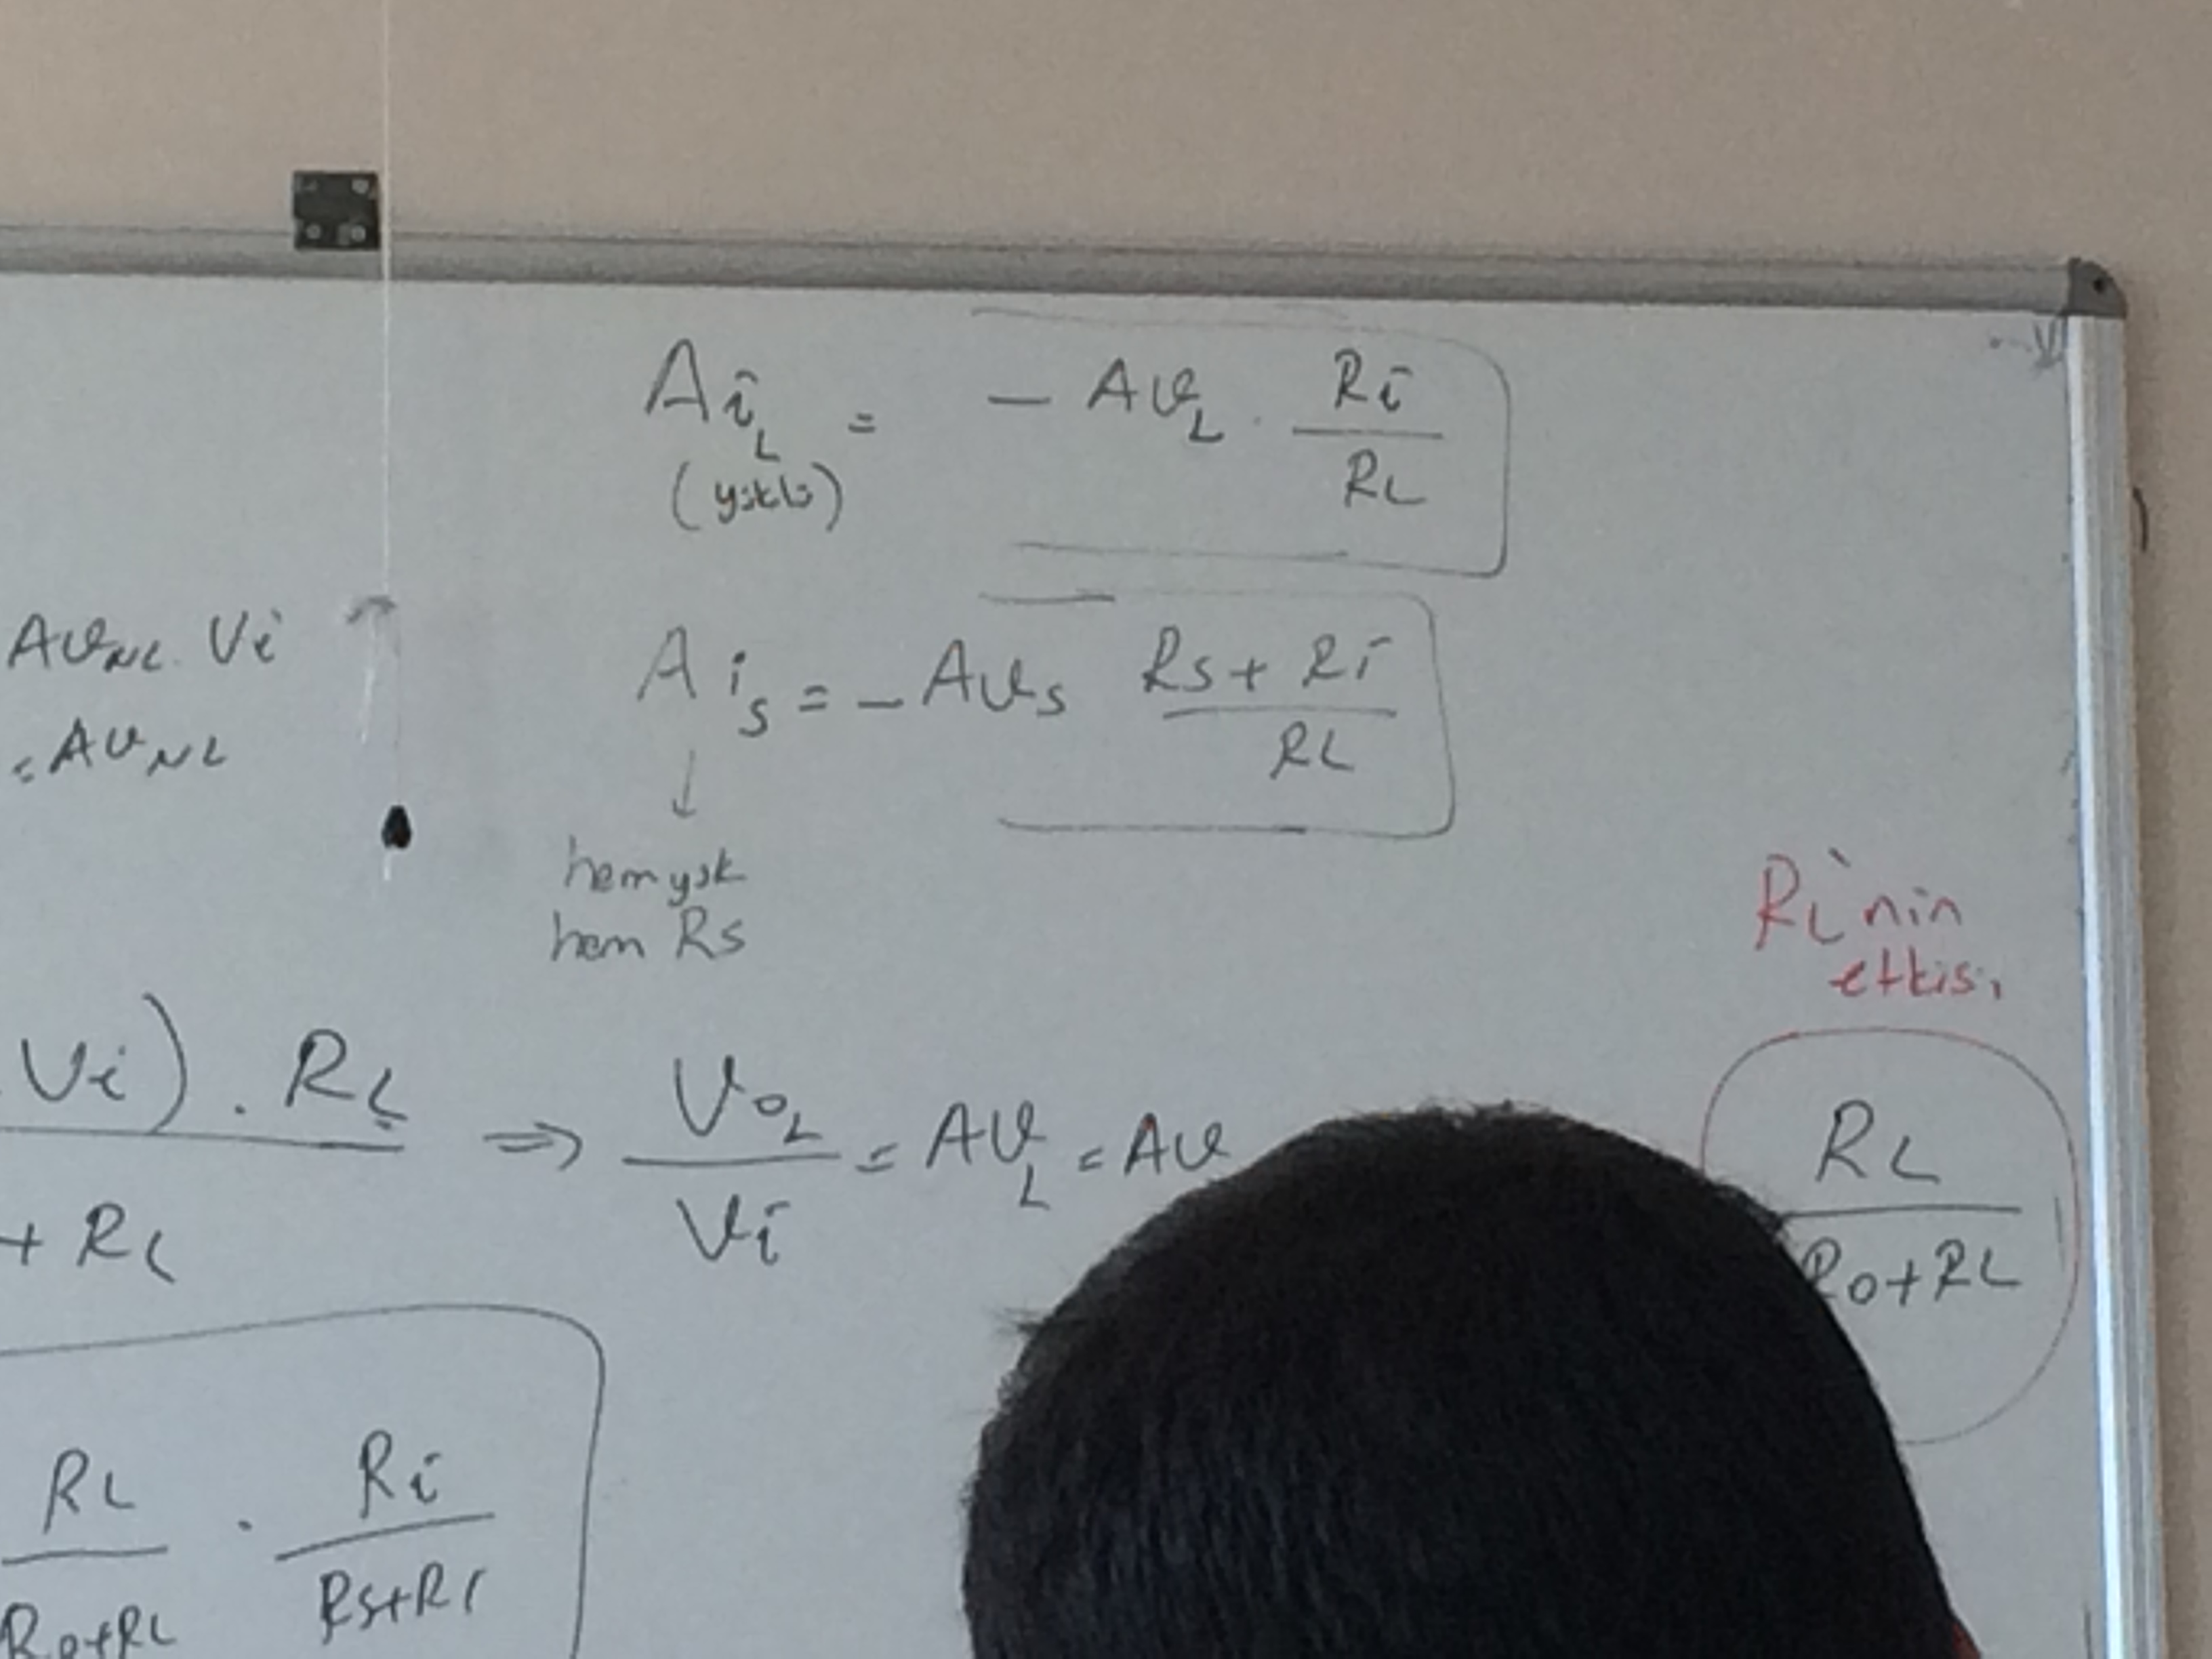 Ai_L = - Av_L . Ri / RL
(yüklü)
Av_NL . Vi
= Av_NL
Ai_s = - Av_s (Rs + Ri) / RL
↓
hem yük
hem Rs
RL'nin
etkisi
Vi) . RL
+ RL
⇒ Vo_L / Vi = Av_L = Av
RL / (Ro+RL)
RL / (Ro+RL) . Ri / (Rs+Ri)